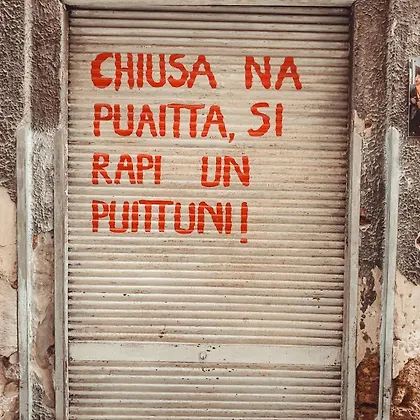 CHIUSA NA
PUAITTA, SI
RAPI UN
PUITTUNI!